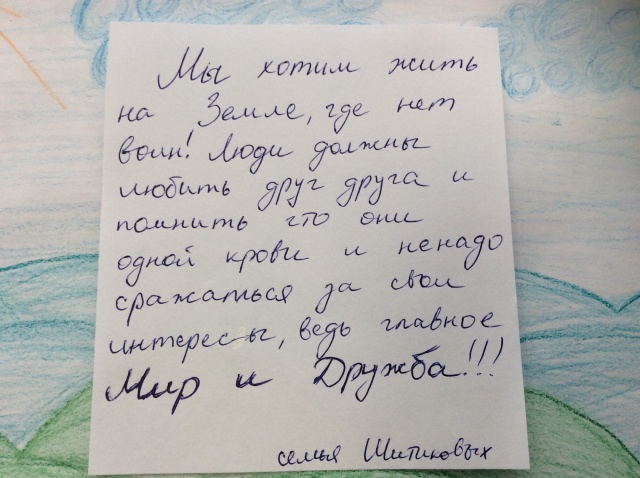 Мы хотим жить
на Земле, где нет
воин! Люди должны
любить друг друга и
помнить что они
одной крови и ненадо
сражаться за свои
интересы, ведь главное
Мир и Дружба!!!
семья Шитиковых